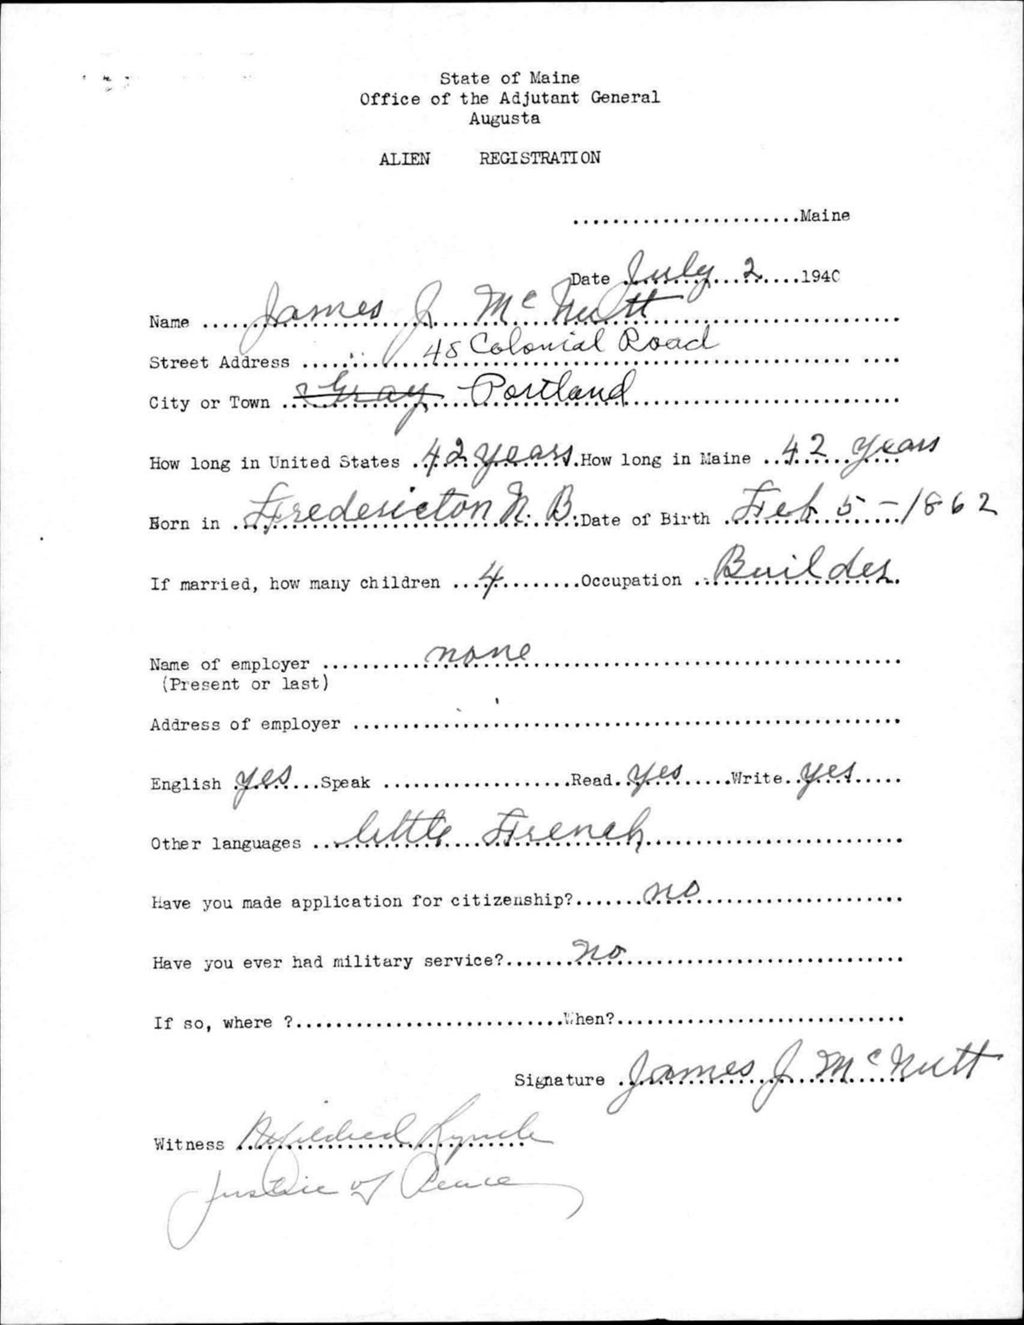 State of Maine
Office of the Adjutant General
Augusta
ALIEN REGISTRATION
.......................Maine
Date July 2 ....1940
Name James J McNutt
Street Address 48 Colonial Road
City or Town Gray Portland
How long in United States 42 years. How long in Maine 42 years
Born in Fredericton N. B. Date of Birth Feb 5 - 1862
If married, how many children 4 Occupation Builder
Name of employer none
(Present or last)
Address of employer
English yes Speak Read yes Write yes
Other languages little French
Have you made application for citizenship? no
Have you ever had military service? no
If so, where ? When?
Signature James J McNutt
Witness Mildred Lynch
Justice of Peace